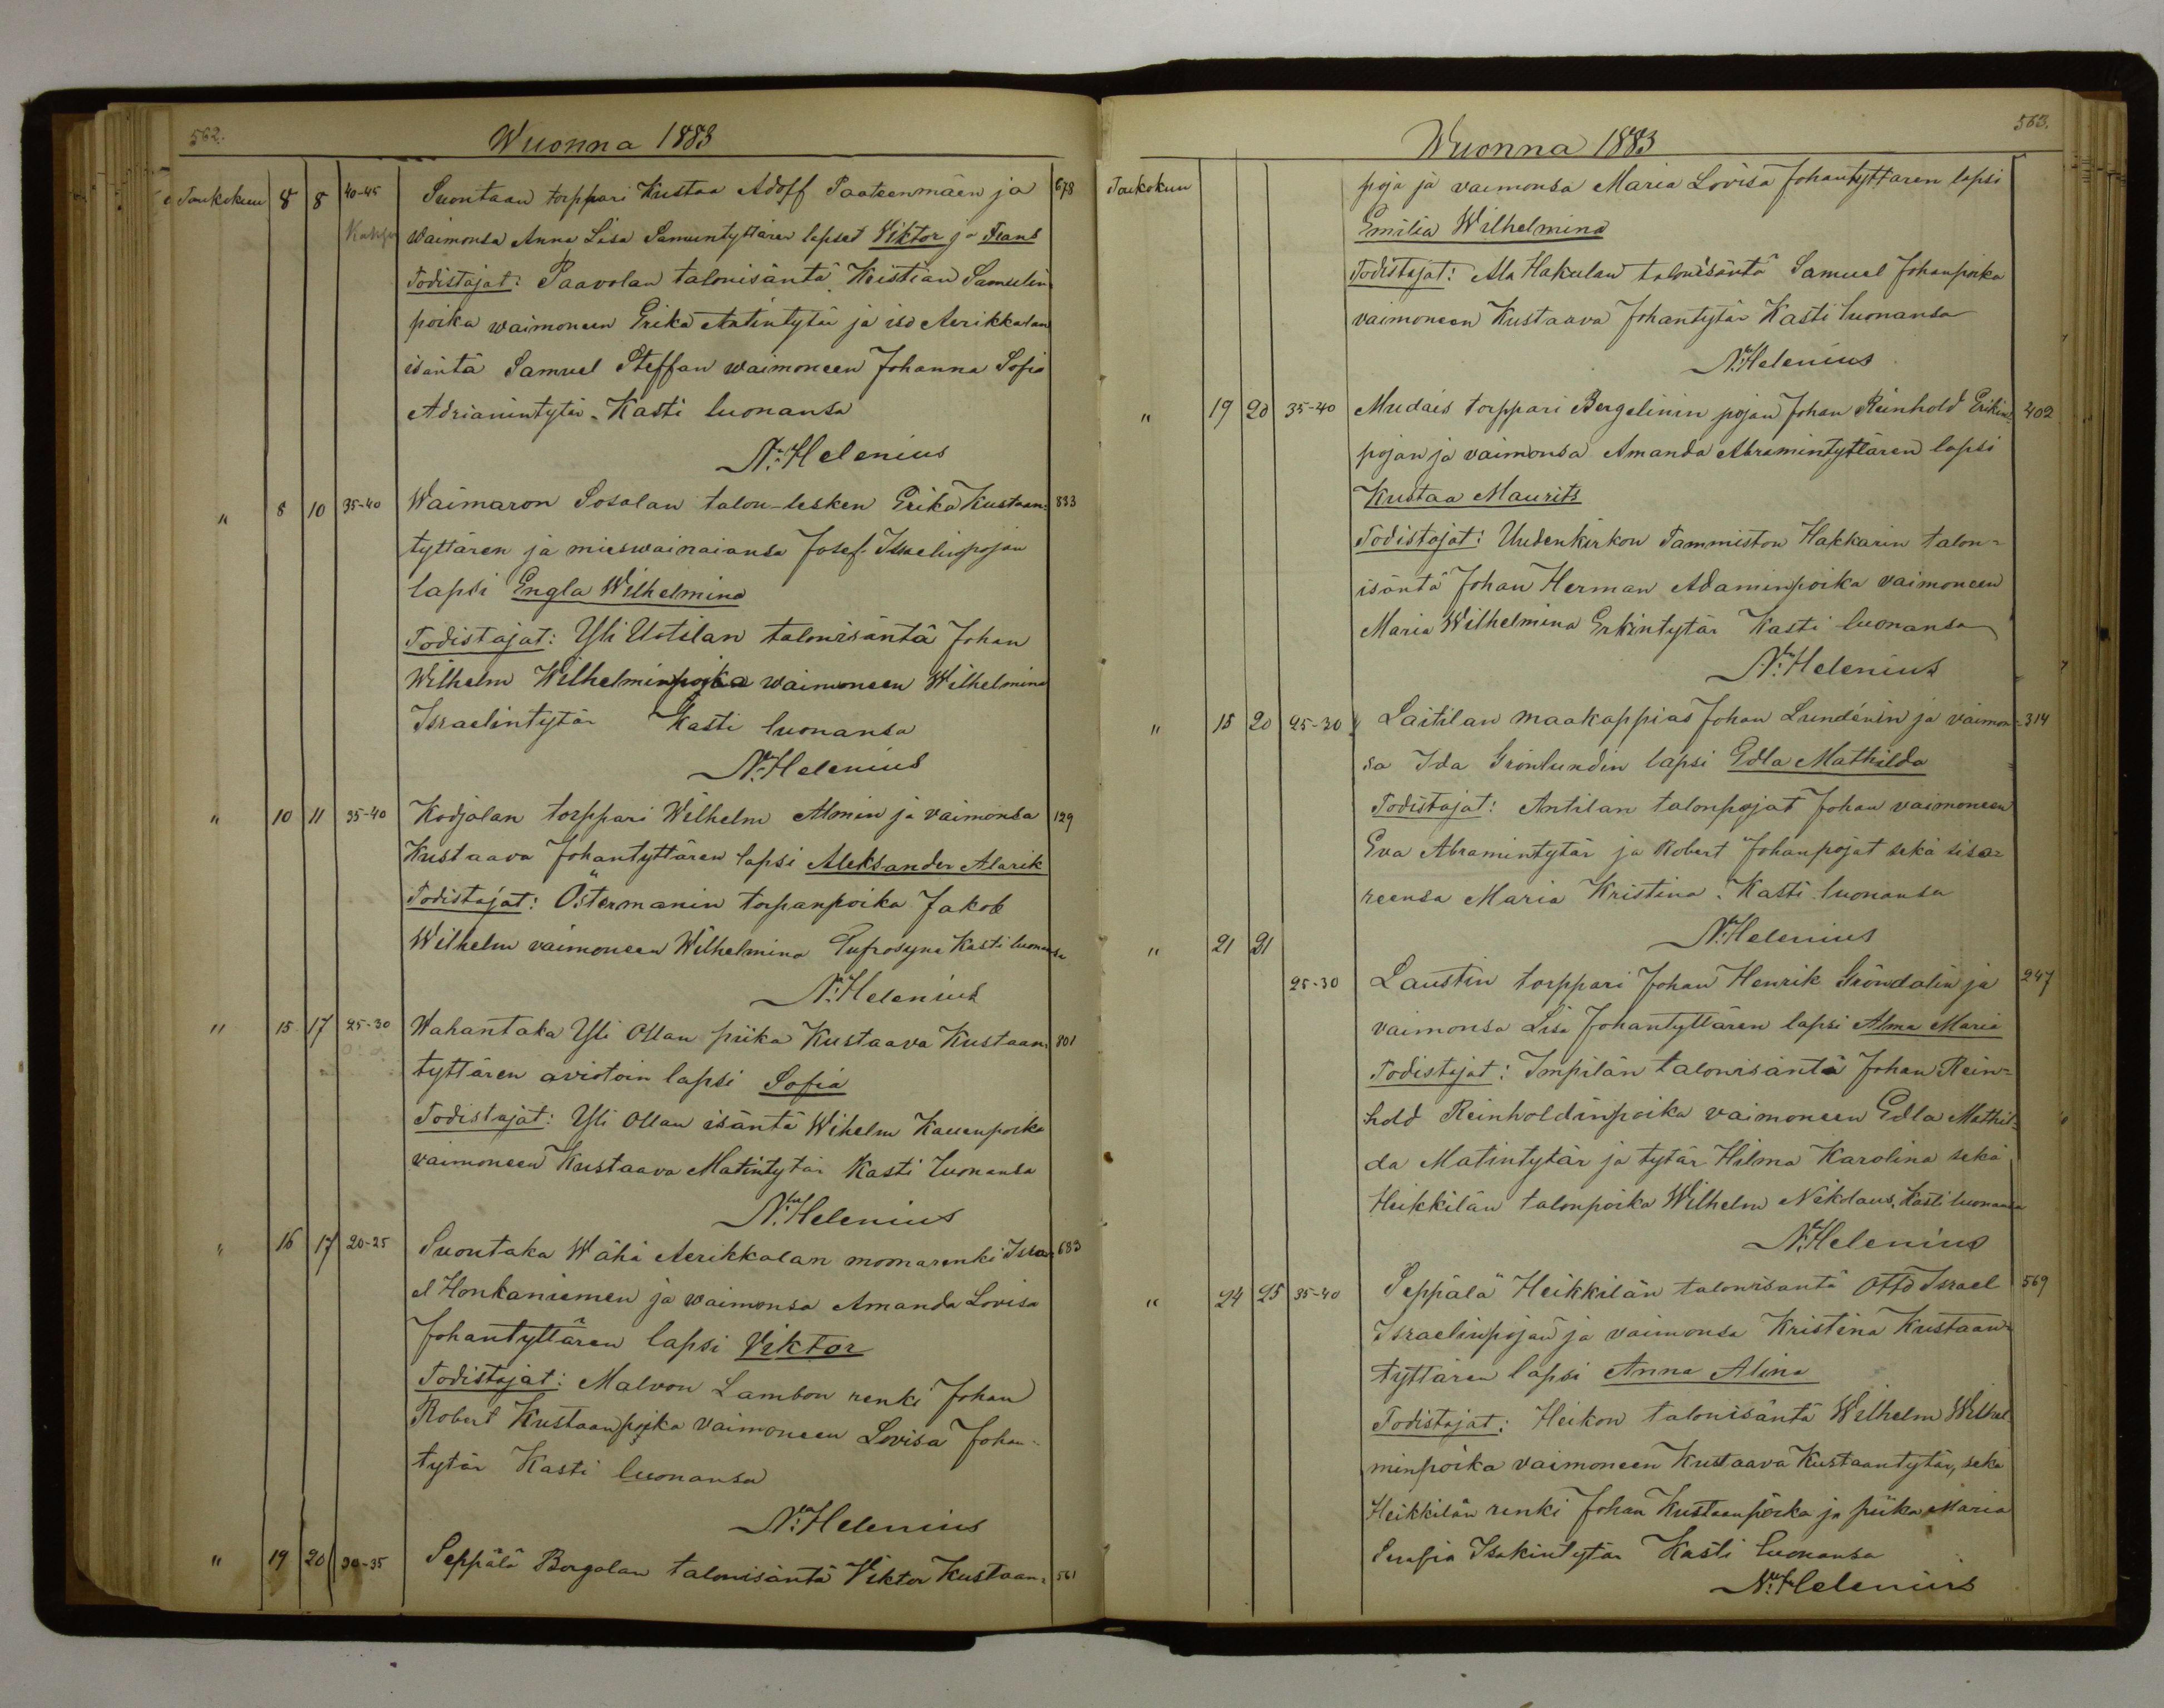 562.
Wuonna 1883
Toukokuun 8 8 40-45 Suontaan torppari Kustaa Adolf Paateenmäen ja 678
Waimonsa Anna Lisa Samuntyttären lapset Viktor ja Frans
Todistajat: Paavolan talonisäntä Kristian Samuelin
poika waimoneen Erika Antintytär ja iso Aerikkalan
isäntä Samuel Steffan waimoneen Johanna Sofia
Adrianintytär. Kasti luonansa
N:Helenius
" 8 10 35-40 Waimaron Sosalan talon-lesken Erika Kustaan= 833
tyttären ja mieswainaiansa Josef Israelinpojan
lapsi Engla Wilhelmina
Todistajat: Yli Uotilan talonisäntä Johan
Wilhelm Wilhelminpoika waimoneen Wilhelmina
Israelintytär Kasti luonansa
N:Helenius
" 10 11 35-40 Kodjalan torppari Wilhelm Almin ja vaimonsa 129
Kustaava Johantyttären lapsi Aleksander Alarik
Todistajat: Östermanin torpanpoika Jakob
Wilhelm vaimoneen Wilhelmina Eufrosyne Kasti luonansa
N:Helenius
" 15 17 25-30 Wahantaka Yli Ollan piika Kustaava Kustaan= 801
tyttären aviotoin lapsi Sofia
Todistajat: Yli Ollan isäntä Wihelm
vaimoneen Kustaava Matintytär Kasti luonansa
N:Helenius
" 16 17 20-25 Suontaka Wähä Aerikkalan muonarenki Isra= 683
el Honkaniemen ja waimonsa Amanda Lovisa
Johantyttären lapsi Viktor
Todistajat: Malvon Lambon renki Johan
Robert Kustaanpoika vaimoneen Lovisa Johan=
tytär Kasti luonansa
N:Helenius
" 19 20 30-35 Seppälä Borgalan talonisäntä Viktor Kustaan= 561
563.
Wuonna 1883
Toukokuu poja ja vaimonsa Maria Lovisa Johantyttären lapsi
Emilia Wilhelmina
Todistajat: Ala Hakulan talonisäntä Samuel Johanpoika
vaimoneen Kustaava Johantytär Kasti luonansa
N:Helenius
" 19 20 35-40 Mudais torppari Bergelinin pojan Johan Reinhold Erikin= 402
pojan ja vaimonsa Amanda Abramintyttären lapsi
Kustaa Maurits
Todistajat: Uudenkirkon Tammiston Hakkarin talon=
isäntä Johan Herman Adaminpoika vaimoneen
Maria Wilhelmina Erkintytär Kasti luonansa
N:Helenius
" 15 20 25-30 Laitilan maakappias Johan Lundénin ja vaimon= 314
sa Ida Grönlundin lapsi Edla Mathilda
Todistajat: Antilan talonpojat Johan vaimoneen
Eva Abramintytär ja Robert Johanpojat sekä sisa=
reensa Maria Kristina. Kasti luonansa
N:Helenius
" 21 21
25-30 Laustin torppari Johan Henrik Gröndalin ja 247
vaimonsa Lisa Johantyttären lapsi Alma Maria
Todistajat: Impilän talonisäntä Johan Rein=
hold Reinholdinpoika vaimoneen Edla Mathil=
da Matintytär ja tytär Hilma Karolina sekä
Heikkilän talonpoika Wilhelm Nikolaus. Kasti luonansa
N:Helenius
" 24 25 35-40 Seppälä Heikkilän talonisäntä Otto Israel 569
Israelinpojan ja vaimonsa Kristina Kustaan=
tyttären lapsi Anna Alina
Todistajat: Heikon talonisäntä Wilhelm Wilhel
minpoika vaimoneen Kustaava Kustaantytär, sekä
Heikkilän renki Johan Kustaanpoika ja piika Maria
Serafia Isakintytär Kasti luonansa
N:Helenius